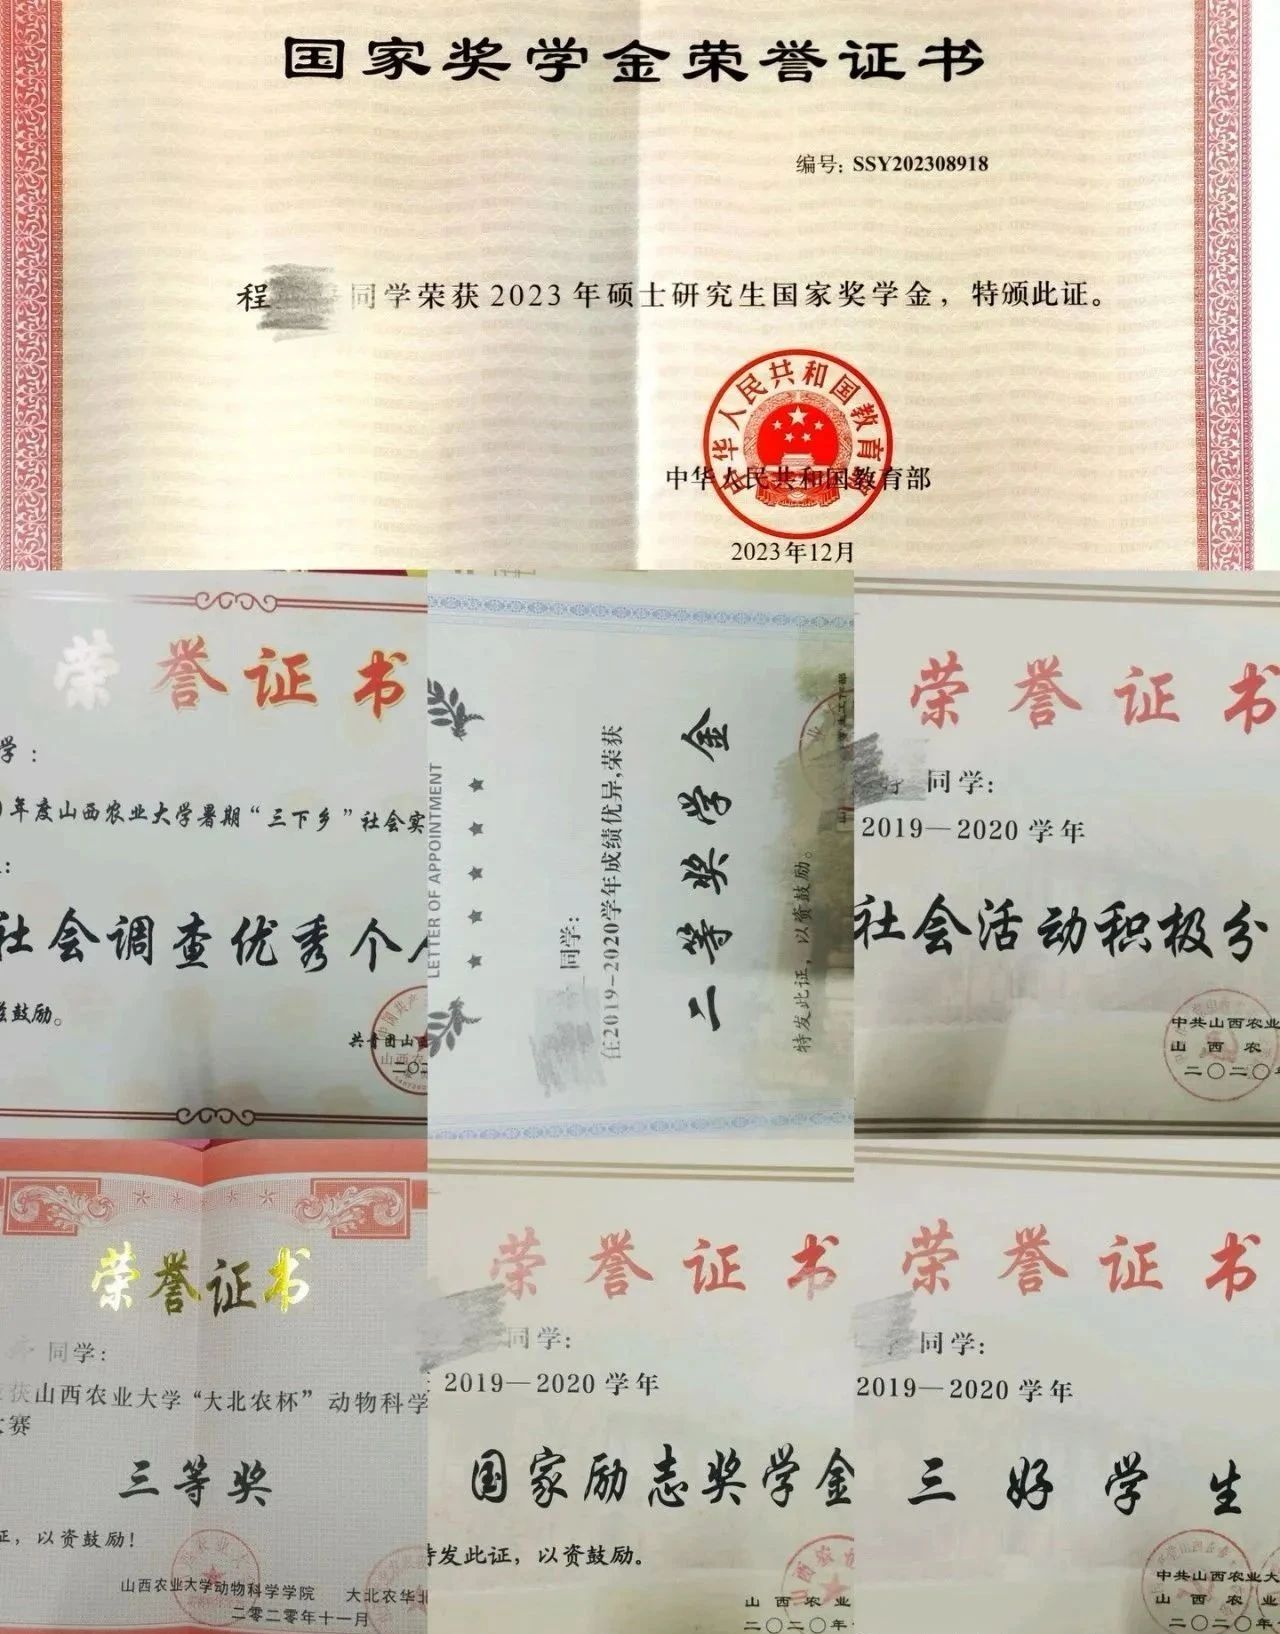 国家奖学金荣誉证书
编号：SSY202308918
程
同学荣获2023年硕士研究生国家奖学金，特颁此证。
中华人民共和国教育部
中华人民共和国教育部
2023年12月
荣誉证书
学：
年度山西农业大学暑期“三下乡”社会实
社会调查优秀个
鼓励。
共青团山西
二〇二
LETTER OF APPOINTMENT
同学：
在2019-2020学年成绩优异，荣获
二等奖学金
特发此证，以资鼓励。
荣誉证书
同学：
2019—2020学年
社会活动积极分
中共山西农业
山西农
二〇二〇年
荣誉证书
同学：
获山西农业大学“大北农杯”动物科学
大赛
三等奖
证，以资鼓励！
山西农业大学动物科学学院 大北农华北
二零二零年十一月
荣誉证书
同学：
2019—2020学年
国家励志奖学金
特发此证，以资鼓励。
山西农业
二〇二〇年
荣誉证书
同学：
2019—2020学年
三好学生
中共山西农业大
山西农业
二〇二〇年